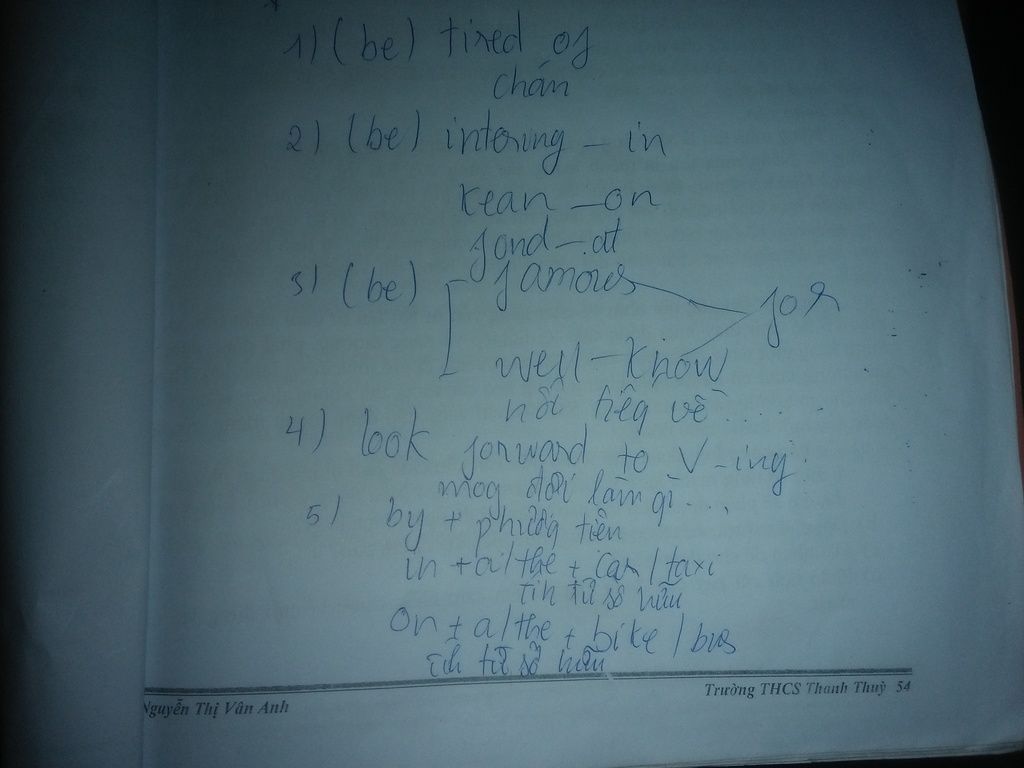 1) (be) tired of
chán
2) (be) intering - in
kean - on
fond - at
3) (be) famous for
well - know
nổi tiếg về .....
4) look forward to V-ing.
mog đợi làm gì ....
5) by + phươg tiện
in + a/the + car / taxi
tíh từ sở hữu
On + a/the + bike / bus
tíh từ sở hữu
Nguyễn Thị Vân Anh
Trường THCS Thanh Thuỳ 54